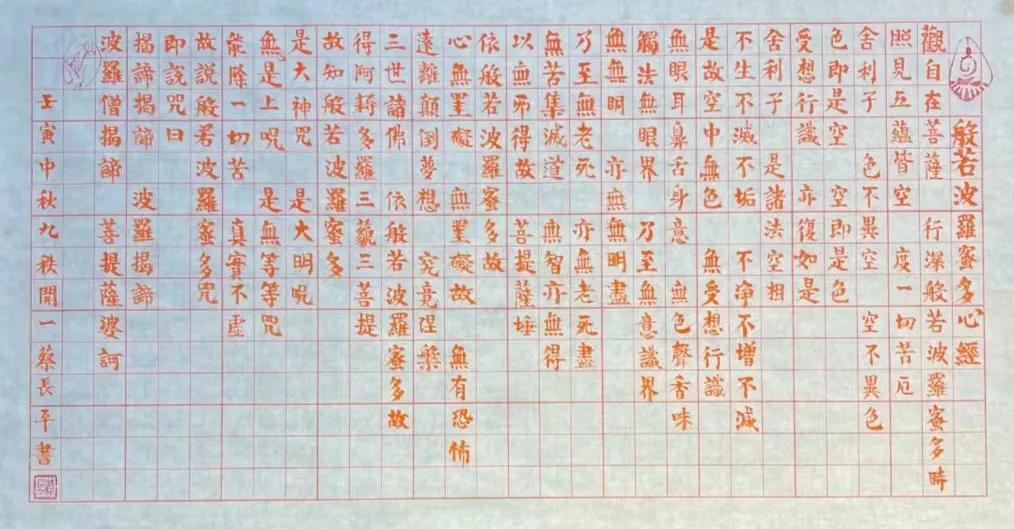 般若波羅蜜多心經
觀自在菩薩 行深般若波羅蜜多時
照見五蘊皆空 度一切苦厄
舍利子 色不異空 空不異色
色即是空 空即是色
受想行識 亦復如是
舍利子 是諸法空相
不生不滅 不垢不淨 不增不減
是故空中無色 無受想行識
無眼耳鼻舌身意 無色聲香味
觸法無眼界 乃至無意識界
無無明 亦無無明盡
乃至無老死 亦無老死盡
無苦集滅道 無智亦無得
以無所得故 菩提薩埵
依般若波羅蜜多故
心無罣礙 無罣礙故 無有恐怖
遠離顛倒夢想 究竟涅槃
三世諸佛 依般若波羅蜜多故
得阿耨多羅三藐三菩提
故知般若波羅蜜多
是大神咒 是大明咒
無是上咒 是無等等咒
能除一切苦 真實不虛
故說般若波羅蜜多咒
即說咒曰
揭諦揭諦 波羅揭諦
波羅僧揭諦 菩提薩婆訶
壬寅中秋九秩開一蔡長平書